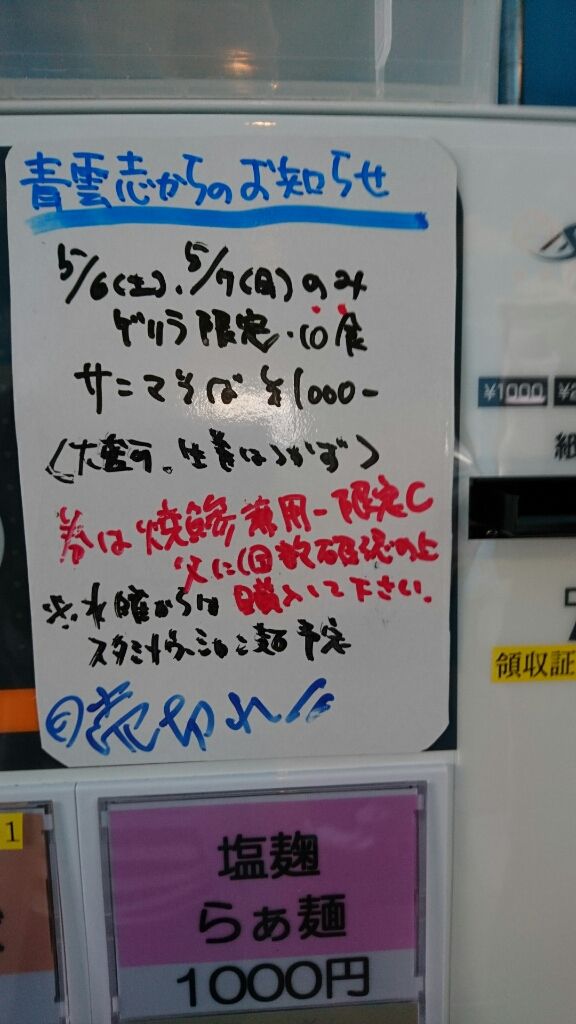 青雲志からのお知らせ
5/6(土)、5/7(日)のみ
ゲリラ限定・10食
サンマそば ¥1000-
(大盛可、生姜はつかず)
券は 焼鯵兼用-限定C
父に回数確認の上
購入して下さい。
※水曜からは
スタミナヴィシャン麺予定
売切れ
¥1000
領収証
1
塩麹
らぁ麺
1000円